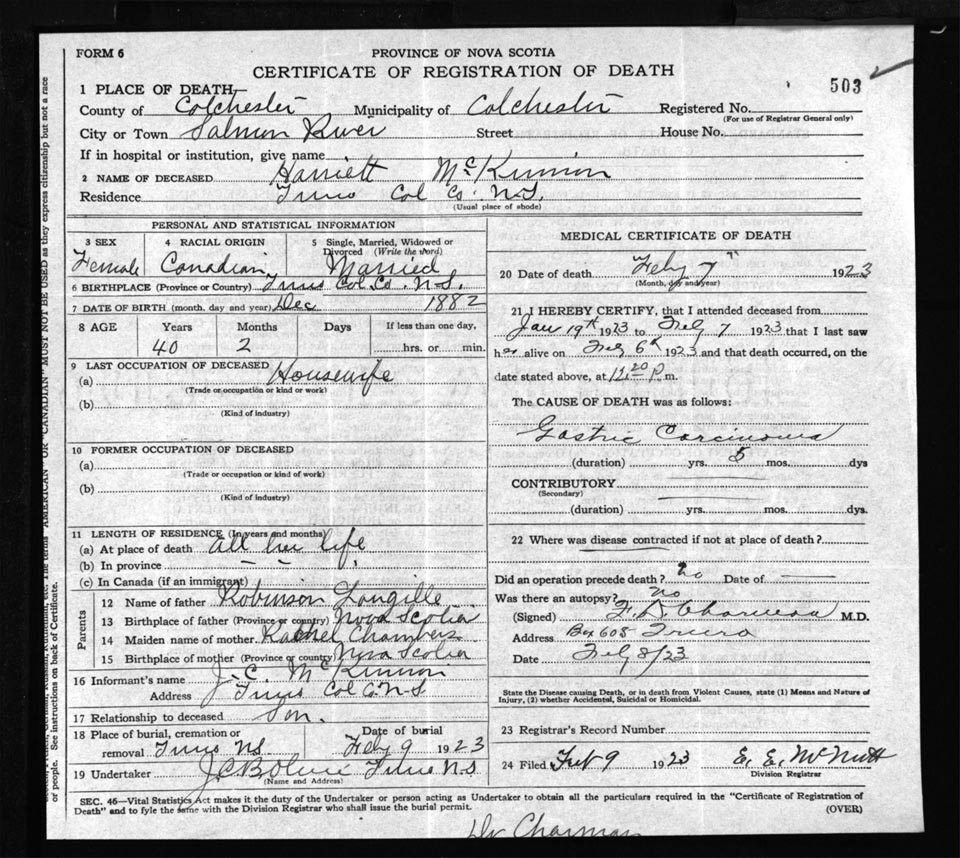 FORM 6
PROVINCE OF NOVA SCOTIA
CERTIFICATE OF REGISTRATION OF DEATH
503
1 PLACE OF DEATH
County of Colchester Municipality of Colchester Registered No.
(For use of Registrar General only)
City or Town Salmon River Street House No.
If in hospital or institution, give name
2 NAME OF DECEASED Harriett McKinnon
Residence Truro Col Co. N.S.
(Usual place of abode)
PERSONAL AND STATISTICAL INFORMATION
3 SEX Female
4 RACIAL ORIGIN Canadian
5 Single, Married, Widowed or Divorced (Write the word) Married
6 BIRTHPLACE (Province or Country) Truro Col. Co. N.S.
7 DATE OF BIRTH (month, day and year) Dec 1882
8 AGE Years Months Days If less than one day,
40 2 hrs. or min.
9 LAST OCCUPATION OF DECEASED
(a) Housewife
(Trade or occupation or kind of work)
(b)
(Kind of industry)
10 FORMER OCCUPATION OF DECEASED
(a)
(Trade or occupation or kind of work)
(b)
(Kind of industry)
11 LENGTH OF RESIDENCE (In years and months)
(a) At place of death all her life
(b) In province
(c) In Canada (if an immigrant)
Parents
12 Name of father Robinson Langille
13 Birthplace of father (Province or country) Nova Scotia
14 Maiden name of mother Rachel Chambers
15 Birthplace of mother (Province or country) Nova Scotia
16 Informant's name J. C. McKinnon
Address Truro Col Co. N-S
17 Relationship to deceased Son.
18 Place of burial, cremation or removal Truro N.S. Date of burial Feby 9 1923
19 Undertaker Truro N.S
(Name and Address)
MEDICAL CERTIFICATE OF DEATH
20 Date of death Feby 7" 1923
(Month, day and year)
21 I HEREBY CERTIFY, that I attended deceased from
Jan 19th 1923 to Feby 7 1923 that I last saw
her alive on Feby 6th 1923 and that death occurred, on the
date stated above, at 12.20 P.m.
The CAUSE OF DEATH was as follows:
Gastric Carcinoma
(duration) yrs. 5 mos. dys
CONTRIBUTORY
(Secondary)
(duration) yrs. mos. dys.
22 Where was disease contracted if not at place of death?
Did an operation precede death? no Date of
Was there an autopsy? no
(Signed) F. D. Charman M.D.
Address Box 605 Truro
Date Feby 8/23
State the Disease causing Death, or in death from Violent Causes, state (1) Means and Nature of
Injury, (2) whether Accidental, Suicidal or Homicidal.
23 Registrar's Record Number
24 Filed Feb 9 1923 E. E. McNutt
Division Registrar
SEC. 46—Vital Statistics Act makes it the duty of the Undertaker or person acting as Undertaker to obtain all the particulars required in the "Certificate of Registration of
Death" and to fyle the same with the Division Registrar who shall issue the burial permit.
(OVER)
Dr Charman
AMERICAN OR "CANADIAN" MUST NOT BE USED as they express citizenship but not a race
or people. See instructions on back of Certificate.